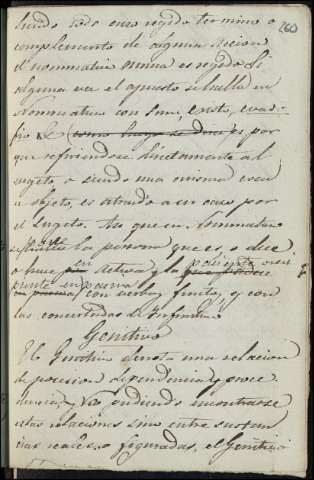 260
siendo todo caso regido termino o
complemento de alguna accion
el nominativo nunca es regido. Si
alguna vez el apuesto se halla en
Nominativo con Sum, existo,
fio &c es por
que refiriendose directamente al
sugeto o siendo una misma cosa
u objeto, es atraido a un caso por
el sugeto. Asi que en Nominativo
se pone la persona que es, o dice
o hace en activa y la paciente
en pasiva con verbos finitos, y con
las concertadas de Infinitivo
Genitivo
El Genitivo denota una relacion
de posesion dependencia y proce
dencia, y no pudiendo encontrarse
estas relaciones sino entre sustan
cias reales, o figuradas, el Genitivo